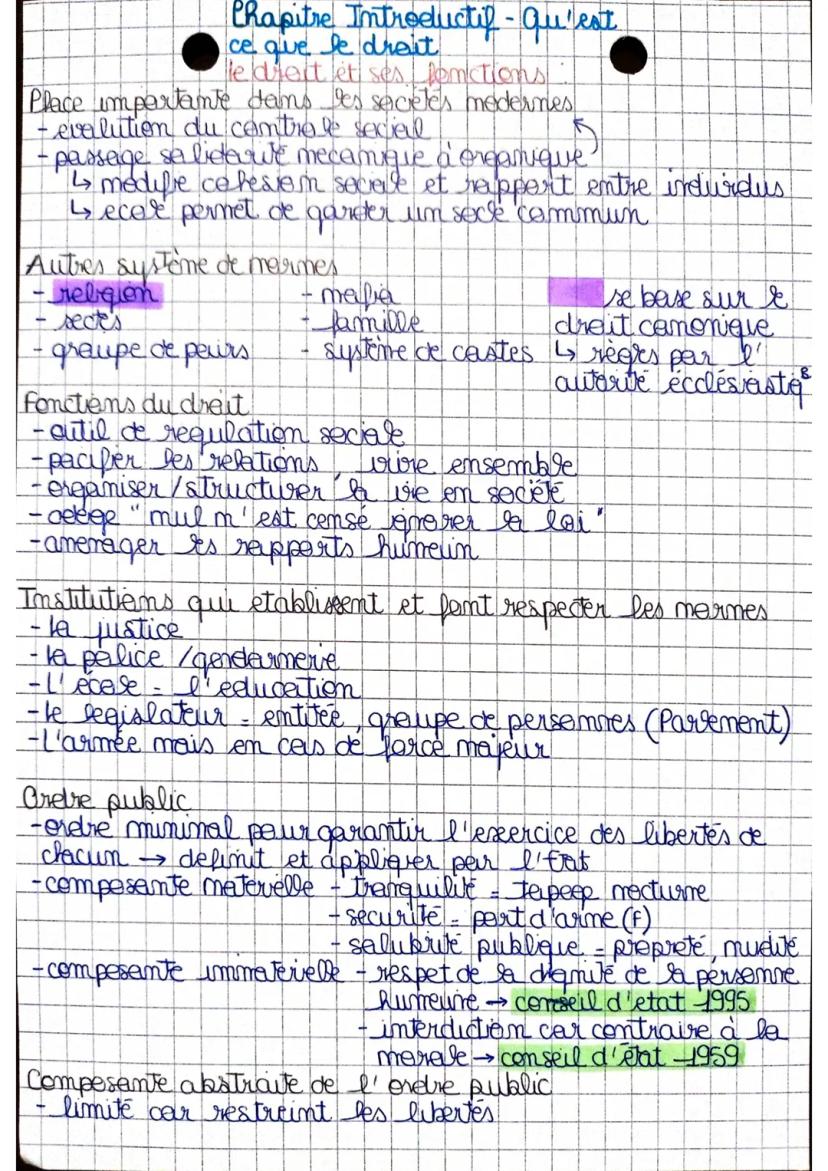 Chapitre Introductif - Qu'est
ce que le droit
le droit et ses fonctions :
Place importante dans les sociétés modernes
- evolution du controle social
- passage solidarité mecanique à organique
↳ modifie cohesion sociale et rapport entre individus
↳ ecole permet de garder un socle commun
Autres système de normes
- religion
- sectes
- groupe de pairs
- mafia
- famille
- système de castes
se base sur le
droit canonique
↳ règles par l'
autorité écclésiastiq
Fonctions du droit
- outil de regulation sociale
- pacifier les relations, vivre ensemble
- organiser/structurer la vie en société
- adage "nul n'est censé ignorer la loi"
- amenager les rapports humain
Institutions qui etablissent et font respecter les normes
- la justice
- la police /gendarmerie
- L'école = l'education
- le legislateur = entitée, groupe de personnes (Parlement)
- L'armée mais en cas de force majeur
Ordre public
- ordre minimal pour garantir l'exercice des libertés de
chacun → definit et appliquer par l'Etat
- composante materielle - tranquilité = tapage nocturne
- securité = port d'arme (f)
- salubrité publique = propreté, nudité
- composante immaterielle - respet de la dignité de la personne
humaine → conseil d'etat 1995
- interdiction car contraire à la
morale → conseil d'état 1959
Composante abstraite de l'ordre public
- limité car restreint les libertés